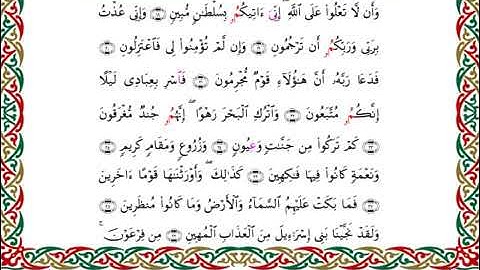 وَأَن لَّا تَعْلُوا۟ عَلَى ٱللَّهِ ۖ إِنِّىَ ءَاتِيكُمُۥ بِسُلْطَٰنٍ مُّبِينٍ ۝ وَإِنِّى عُذْتُ
بِرَبِّى وَرَبِّكُمُۥ أَن تَرْجُمُونِ ۝ وَإِن لَّمْ تُؤْمِنُوا۟ لِى فَٱعْتَزِلُونِ ۝
فَدَعَا رَبَّهُۥٓ أَنَّ هَٰٓؤُلَآءِ قَوْمٌ مُّجْرِمُونَ ۝ فَٱسْرِ بِعِبَادِى لَيْلًا
إِنَّكُمُۥ مُّتَّبَعُونَ ۝ وَٱتْرُكِ ٱلْبَحْرَ رَهْوًا ۖ إِنَّهُمُۥ جُندٌ مُّغْرَقُونَ
۝ كَمْ تَرَكُوا۟ مِن جَنَّٰتٍ وَعِيُونٍ ۝ وَزُرُوعٍ وَمَقَامٍ كَرِيمٍ ۝
وَنَعْمَةٍ كَانُوا۟ فِيهَا فَٰكِهِينَ ۝ كَذَٰلِكَ ۖ وَأَوْرَثْنَٰهَا قَوْمًا ءَاخَرِينَ
۝ فَمَا بَكَتْ عَلَيْهِمُ ٱلسَّمَآءُ وَٱلْأَرْضُ وَمَا كَانُوا۟ مُنظَرِينَ ۝
وَلَقَدْ نَجَّيْنَا بَنِىٓ إِسْرَٰٓءِيلَ مِنَ ٱلْعَذَابِ ٱلْمُهِينِ ۝ مِن فِرْعَوْنَ ۚ